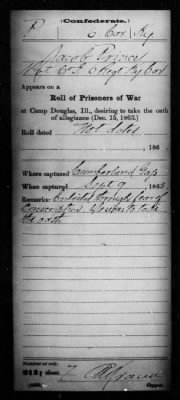 (Confederate.)
P 6 Cav Ky
Jacob Prince
Pvt Co 6 Regt Ky Cav
Appears on a
Roll of Prisoners of War
at Camp Douglas, Ill., desiring to take the oath
of allegiance (Dec. 15, 1863.)
Roll dated
Not dated
186
Where captured Cumberland Gap
When captured Sept 9, 1863
Remarks: Enlisted through fear of
Conscription Desires to take
the oath
Number of roll:
212; sheet 7
Copyist.